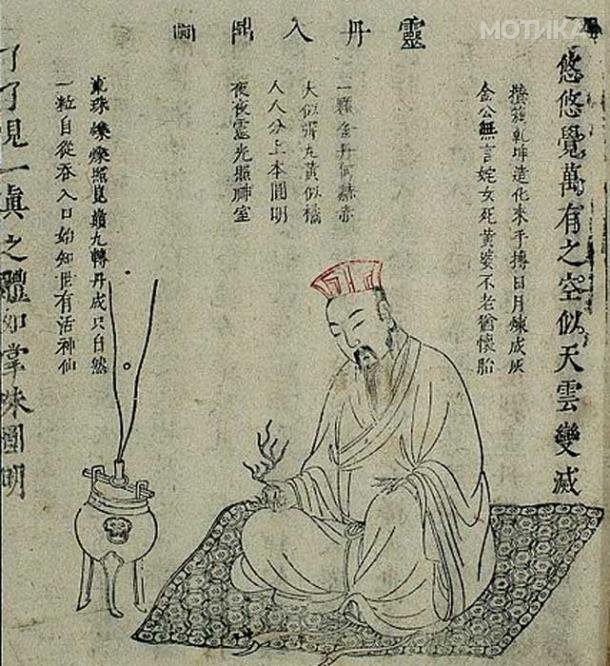 МОТИКА
靈丹入鼎圖
悠悠覺萬有之空似天雲變滅
攢簇乾坤造化來手摶日月煉成灰
金公無言姹女死黃婆不老猶懷胎
一顆金丹何赫赤
大似彈丸黃似橘
人人分上本圓明
夜夜靈光照神室
黍珠爍爍照崑巔九轉丹成只自然
一粒自從吞入口始知世有活神仙
了了見一眞之體如掌珠圓明